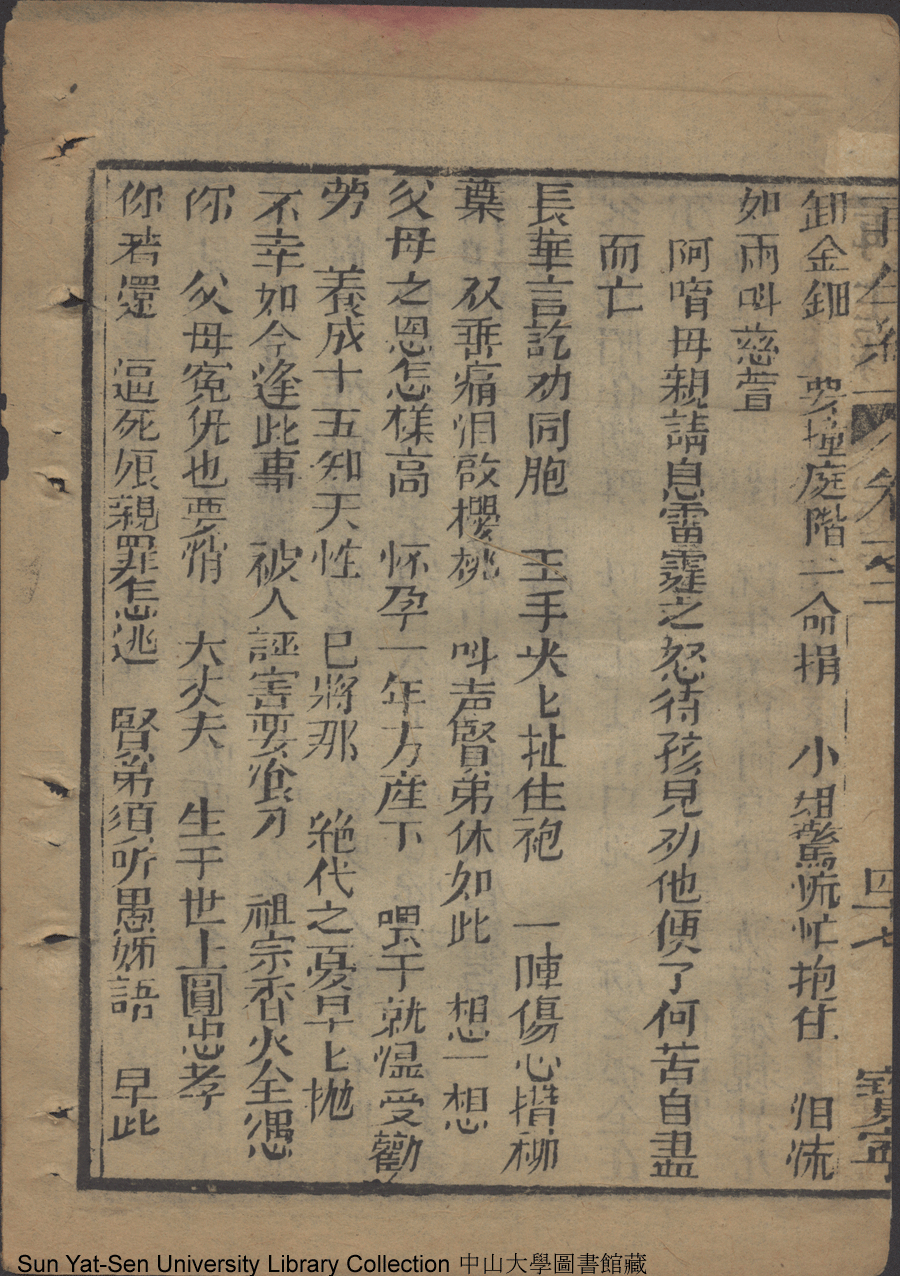 再生緣 卷之二 四十七 寶寧
卸金鈿 要撞庭階一命捐 小姐驚慌忙抱住 泪流
如雨叫慈萱
阿唷母親請息雷霆之怒待孩兒劝他便了何苦自盡
而亡
長華言訖劝同胞 玉手尖匕扯住袍 一陣傷心攢柳
葉 双垂痛泪啟櫻桃 叫声賢弟休如此 想一想
父母之恩怎樣高 怀孕一年方産下 喂干就湿受勸
劳 養成十五知天性 已將那 絶代之憂早匕抛
不幸如今逢此事 被人誣害要飡刀 祖宗香火全凴
你 父母寃仇也要悄 大丈夫 生于世上圓忠孝
你若還 逼死娘親罪怎逃 賢弟須听愚姊語 早此
Sun Yat-Sen University Library Collection 中山大學圖書館藏